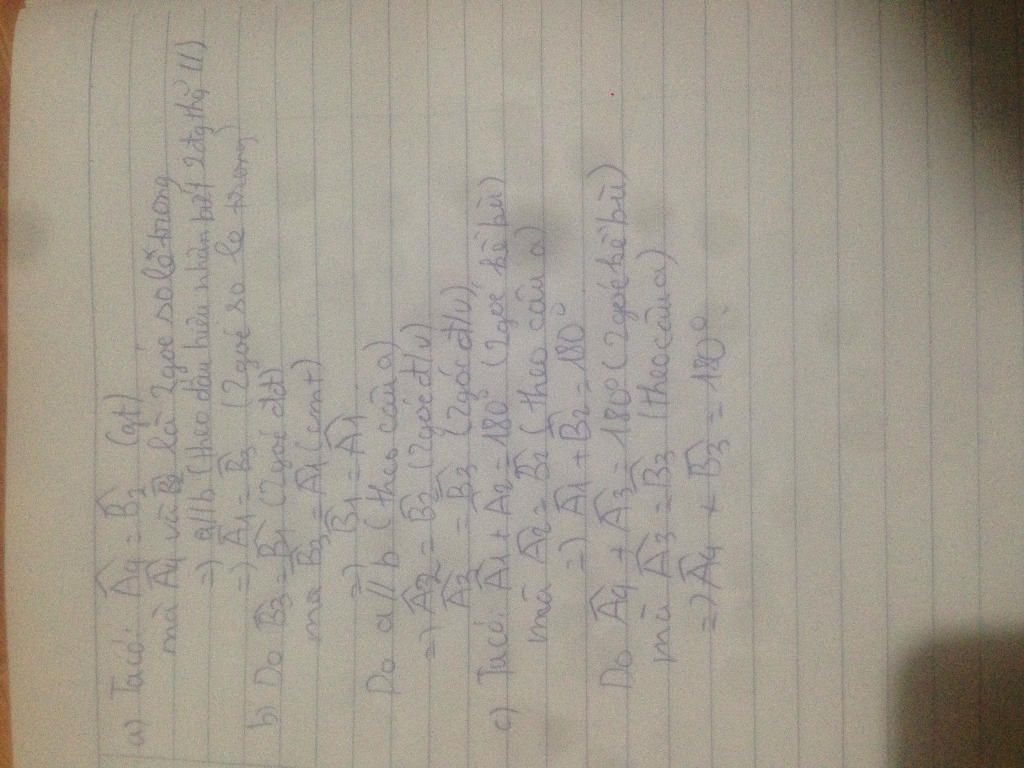 a) Ta có: Â4 = B̂2 (gt)
mà Â4 và B̂2 là 2 góc so le trong
=) a//b (theo dấu hiệu nhận biết 2 đg thg //)
=) Â1 = B̂3 (2 góc so le trong)
b) Do B̂3 = B̂1 (2 góc đđ)
mà B̂3 = Â1 (cmt)
=) B̂1 = Â1
Do a // b (theo câu a)
=) Â2 = B̂2 (2 góc đ/v)
Â3 = B̂3 (2 góc đ/v)
c) Ta có: Â1 + Â2 = 180° (2 góc kề bù)
mà Â2 = B̂2 (theo câu a)
=) Â1 + B̂2 = 180°
Do Â4 + Â3 = 180° (2 góc kề bù)
mà Â3 = B̂3 (theo câu a)
=) Â4 + B̂3 = 180°.